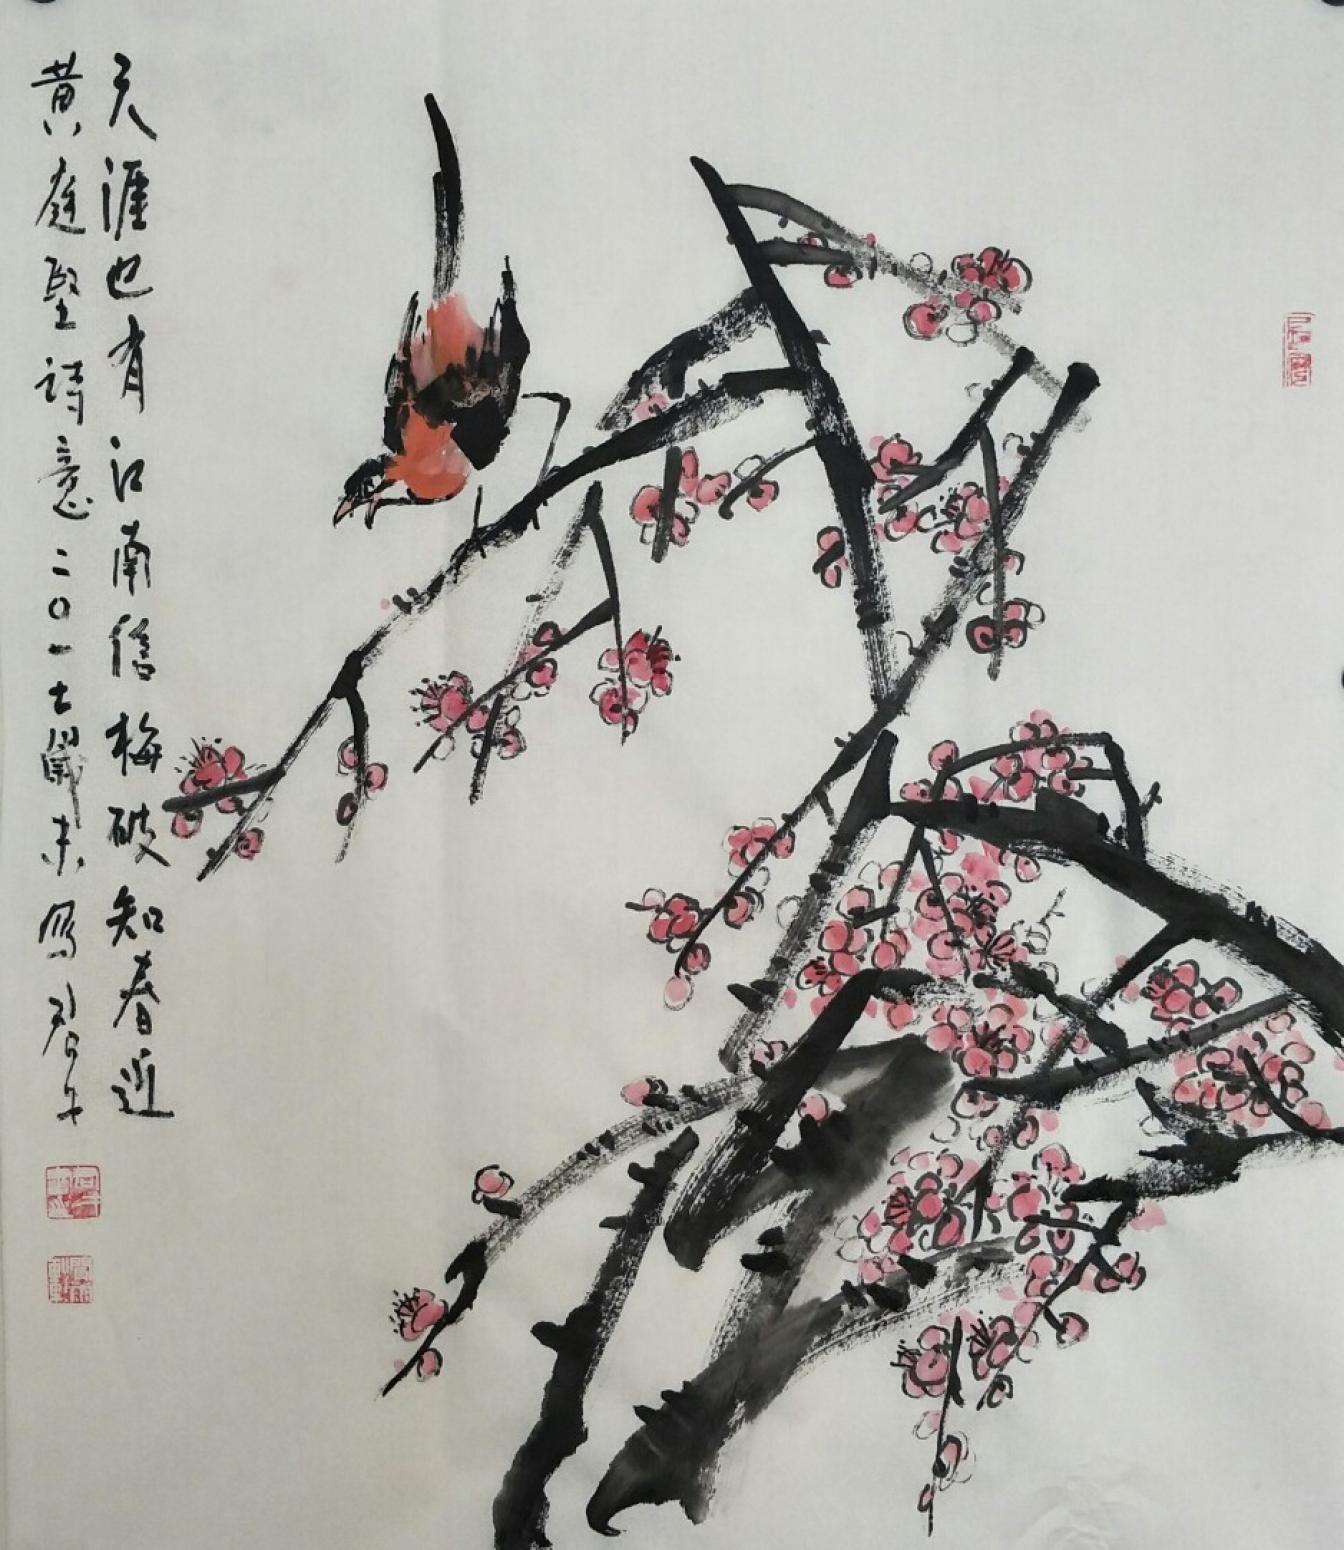 天涯也有江南信梅破知春近
黄庭坚诗意二〇一七歲末写